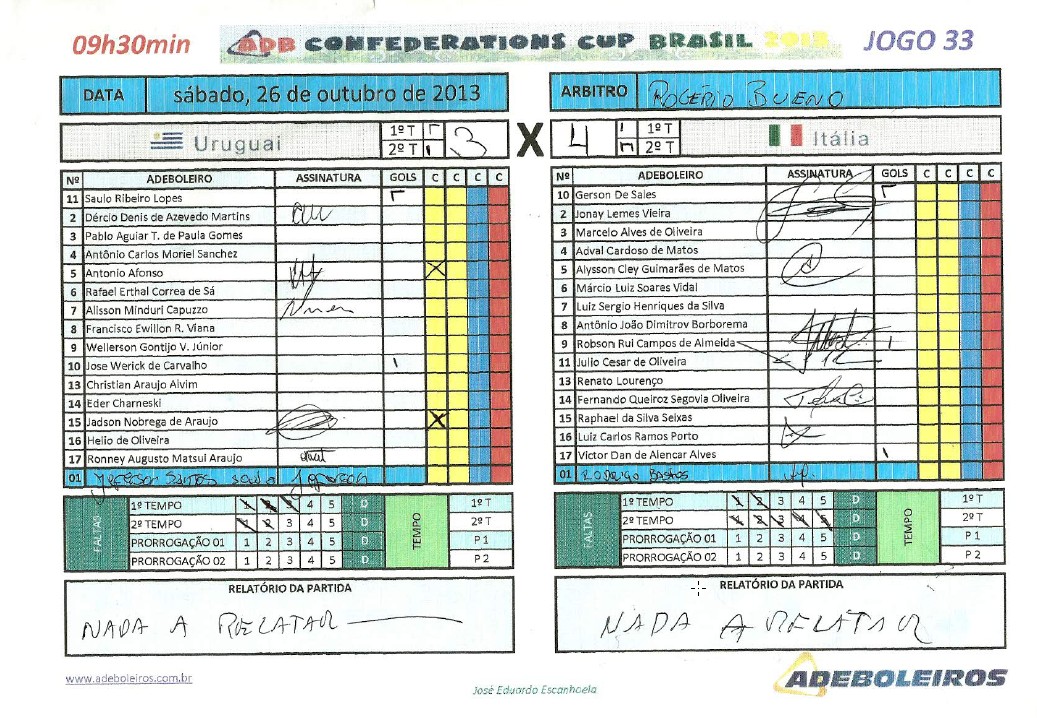 09h30min ADB CONFEDERATIONS CUP BRASIL 2013 JOGO 33
DATA sábado, 26 de outubro de 2013
ARBITRO ROGÉRIO BUENO
Uruguai 1º T 3
2º T
X
4 1º T Itália
2º T
Nº ADEBOLEIRO ASSINATURA GOLS C C C C
11 Saulo Ribeiro Lopes
2 Dércio Denis de Azevedo Martins
3 Pablo Aguiar T. de Paula Gomes
4 Antônio Carlos Moriel Sanchez
5 Antonio Afonso X
6 Rafael Erthal Correa de Sá
7 Alisson Minduri Capuzzo
8 Francisco Ewillon R. Viana
9 Wellerson Gontijo V. Júnior
10 Jose Werick de Carvalho
13 Christian Araujo Alvim
14 Eder Charneski
15 Jadson Nobrega de Araujo X
16 Helio de Oliveira
17 Ronney Augusto Matsui Araujo
01
Nº ADEBOLEIRO ASSINATURA GOLS C C C C
10 Gerson De Sales
2 Jonay Lemes Vieira
3 Marcelo Alves de Oliveira
4 Adval Cardoso de Matos
5 Alysson Cley Guimarães de Matos
6 Márcio Luiz Soares Vidal
7 Luiz Sergio Henriques da Silva
8 Antônio João Dimitrov Borborema
9 Robson Rui Campos de Almeida
11 Julio Cesar de Oliveira
13 Renato Lourenço
14 Fernando Queiroz Segovia Oliveira
15 Raphael da Silva Seixas
16 Luiz Carlos Ramos Porto
17 Victor Dan de Alencar Alves
01 RODRIGO BASTOS
FALTAS
1º TEMPO 1 2 3 4 5 D
2º TEMPO 1 2 3 4 5 D
PRORROGAÇÃO 01 1 2 3 4 5 D
PRORROGAÇÃO 02 1 2 3 4 5 D
TEMPO
1º T
2º T
P 1
P 2
FALTAS
1º TEMPO 1 2 3 4 5 D
2º TEMPO 1 2 3 4 5 D
PRORROGAÇÃO 01 1 2 3 4 5 D
PRORROGAÇÃO 02 1 2 3 4 5 D
TEMPO
1º T
2º T
P 1
P 2
RELATÓRIO DA PARTIDA
NADA A RELATAR
RELATÓRIO DA PARTIDA
NADA A RELATAR
www.adeboleiros.com.br
José Eduardo Escanhoela
ADEBOLEIROS